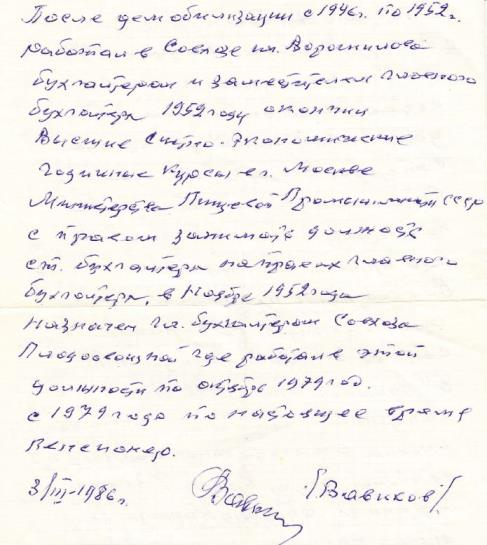 После демобилизации с 1946г. по 1952г.
работал в Совхозе им. Ворошилова
бухгалтером и заместителем главного
бухгалтера 1952 году окончил
Высшие Экономические
годичные курсы в г. Москве
Министерства Пищевой Промышленности СССР
с правом занимать должность
ст. бухгалтера на правах главного
бухгалтера, в Ноябре 1952 года
назначен гл. бухгалтером Совхоза
Плодоовощной где работал в этой
должности по октябрь 1979 год.
с 1979 года по настоящее время
пенсионер.
3/III-1986г. /Вавиков/